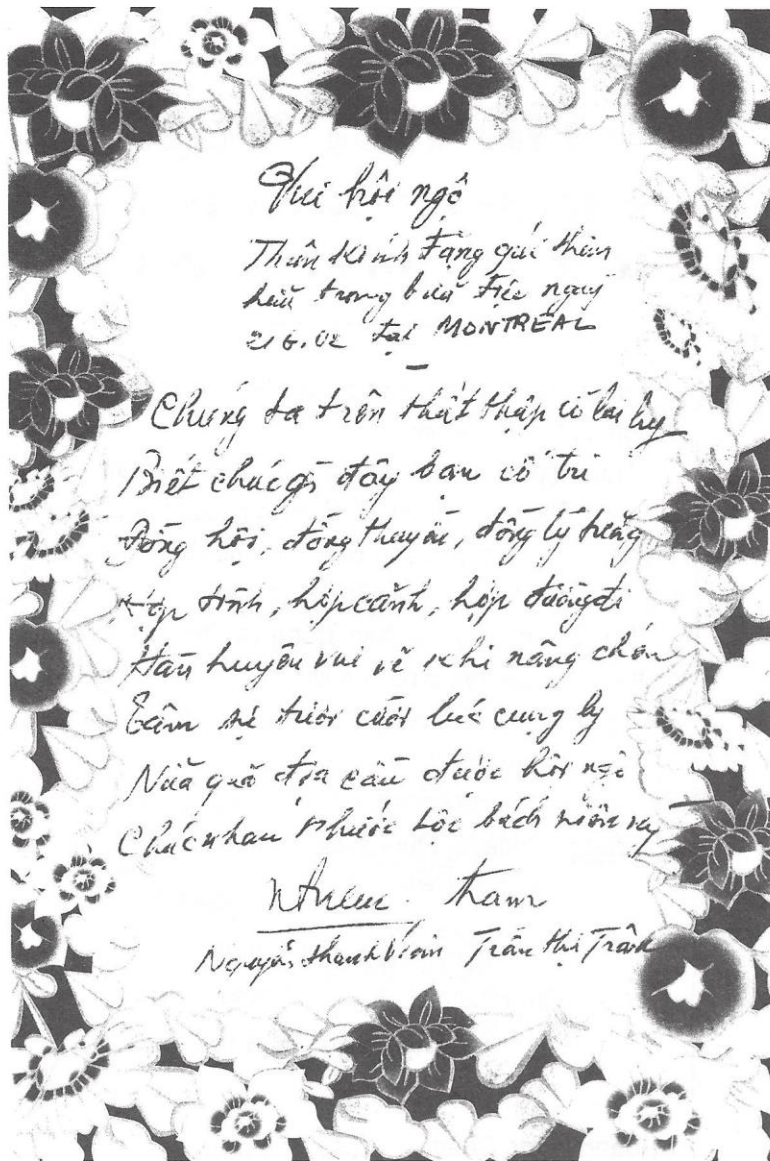 Vui hội ngộ
Thân kính tặng quí thân
hữu trong buổi tiệc ngày
21.6.02 tại MONTREAL
Chúng ta trên thất thập cổ lai hy
Biết chúc gì đây bạn cố tri
Đồng hội, đồng thuyền, đồng lý tưởng
Hợp tình, hợp cảnh, hợp đường đi
Hàn huyên vui vẻ khi nâng chén
Tâm sự tươi cười lúc cụng ly
Nửa quả địa cầu được hội ngộ
Chúc nhau Phước Lộc bách niên
Nguyễn Thanh Trần Thị